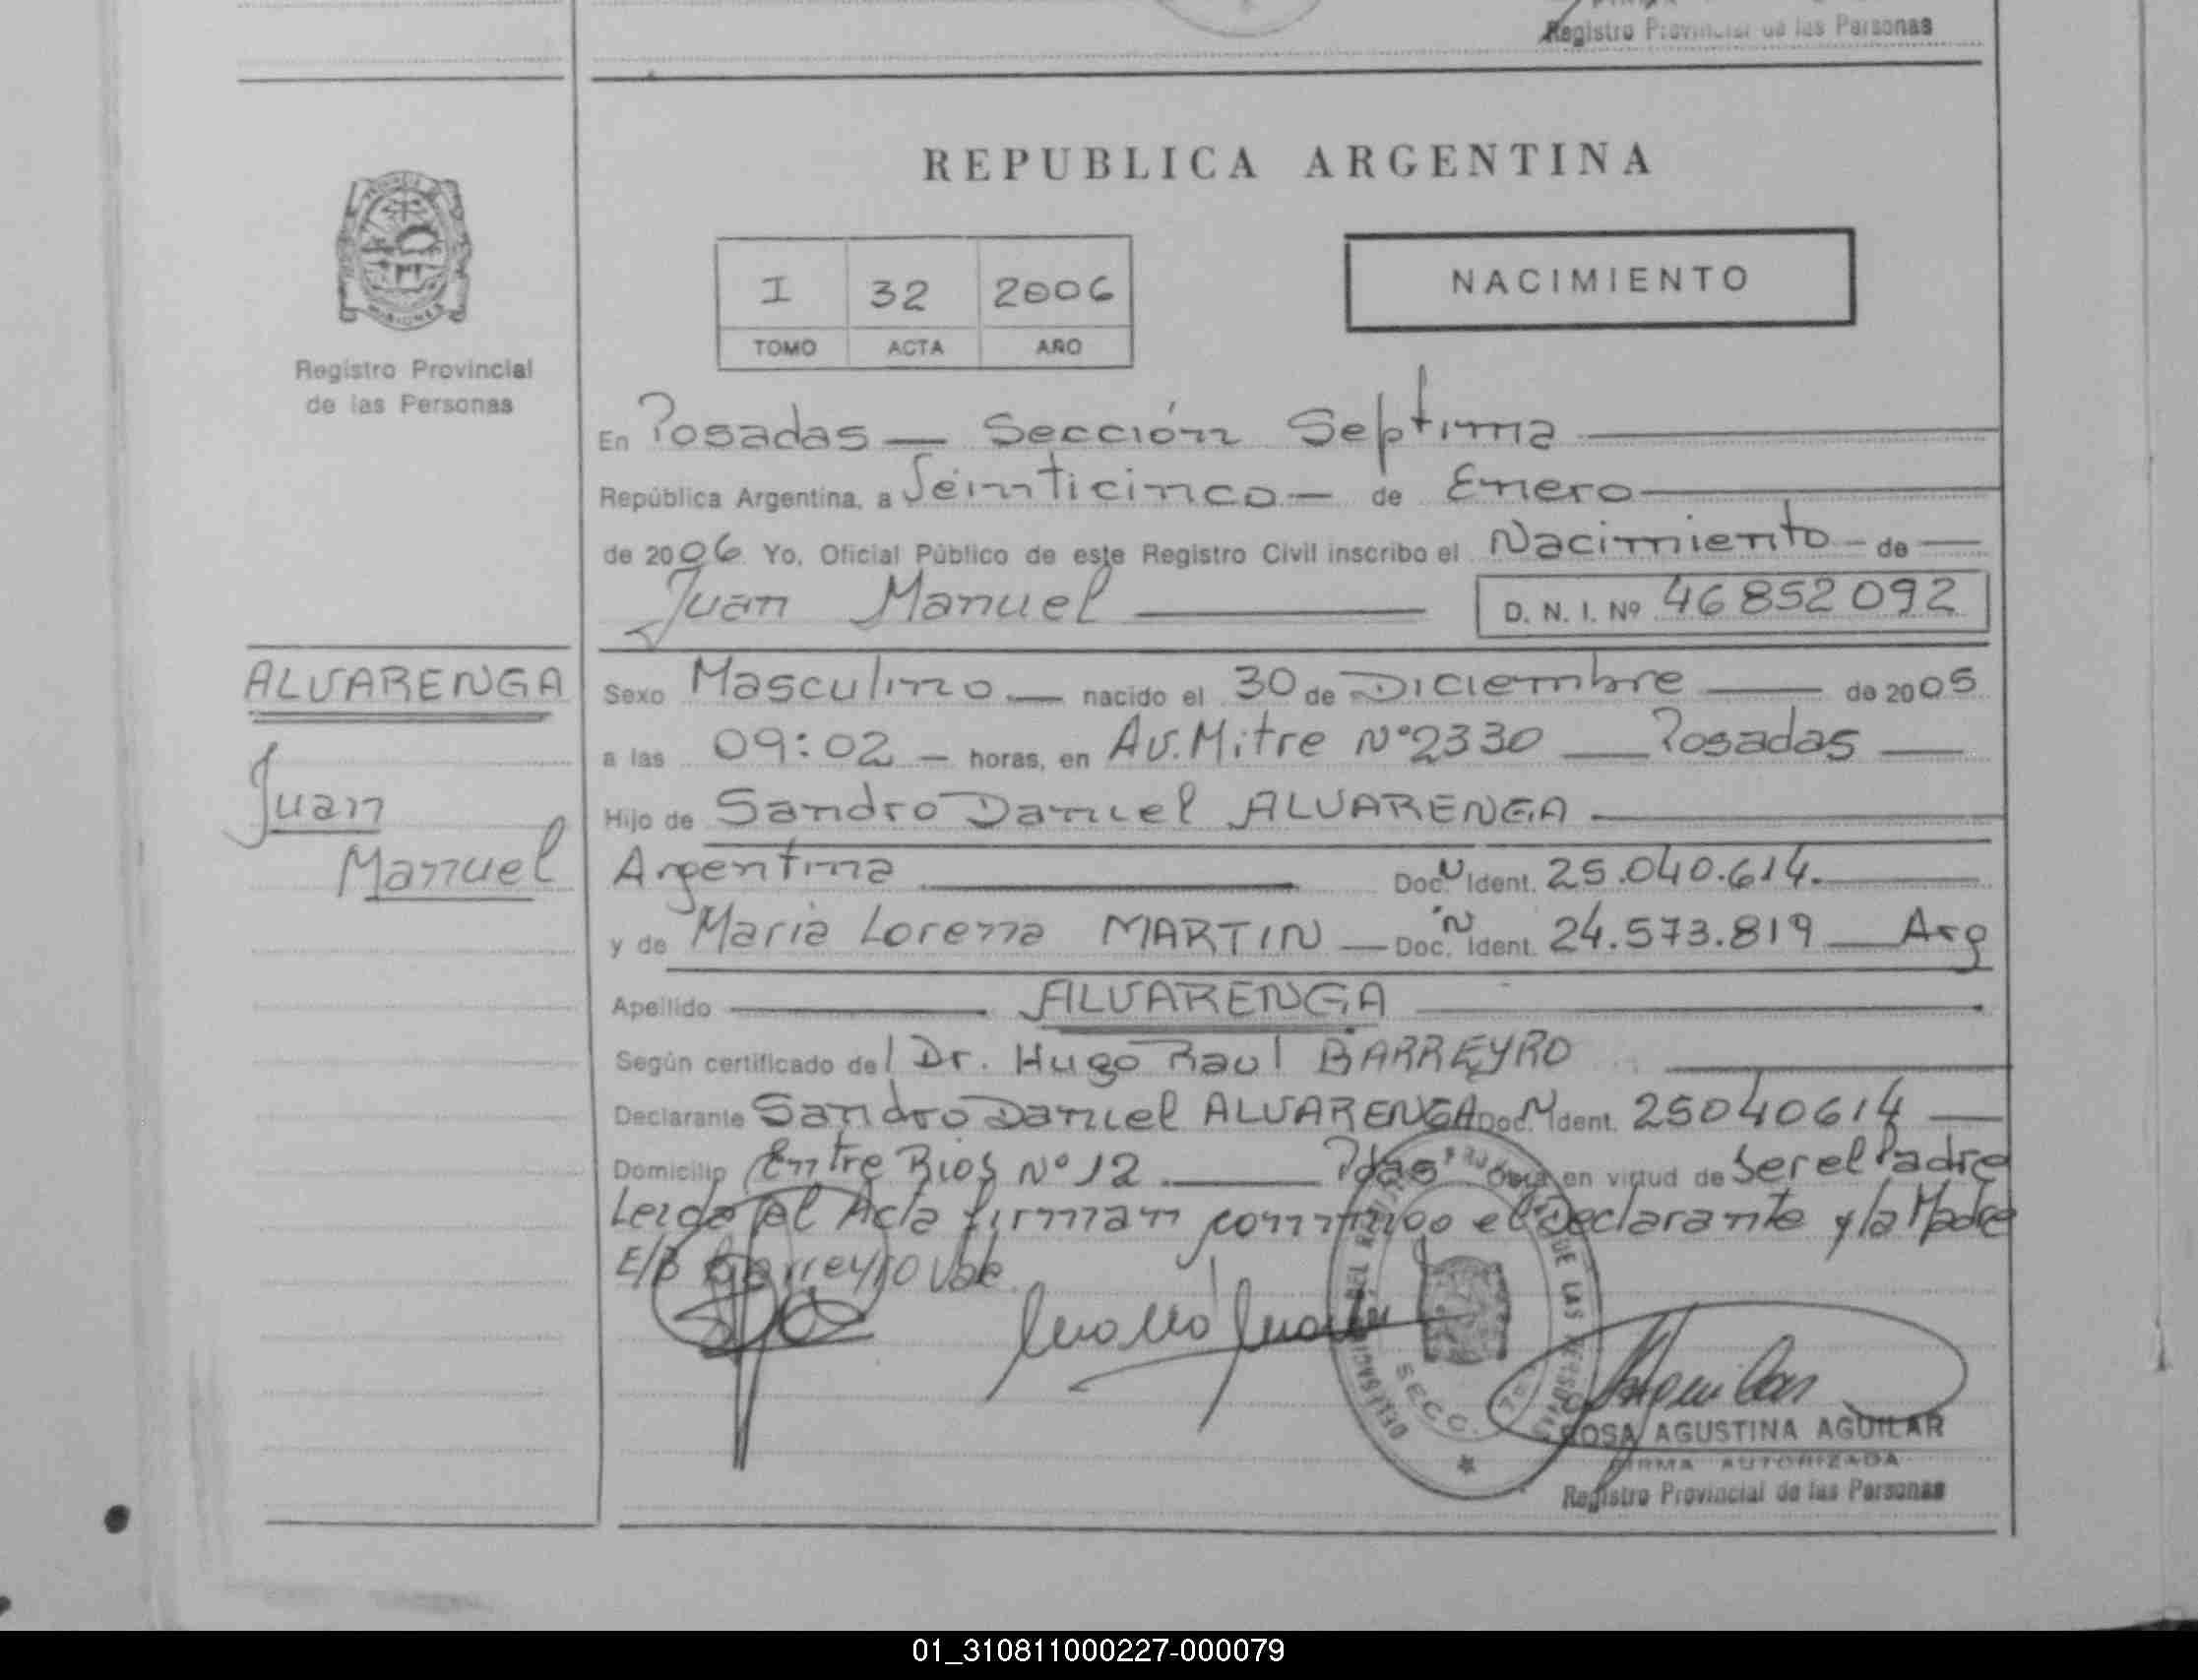 Registro Provincial de las Personas
REPUBLICA ARGENTINA
I 32 2006
TOMO ACTA AÑO
NACIMIENTO
Registro Provincial
de las Personas
En Posadas — Sección Septima
República Argentina, a Veinticinco — de Enero
de 2006 Yo, Oficial Público de este Registro Civil inscribo el Nacimiento - de
Juan Manuel D. N. I. Nº 46852092
ALVARENGA
Juan
Manuel
Sexo Masculino — nacido el 30 de Diciembre — de 2005
a las 09:02 — horas, en Av. Mitre Nº 2330 — Posadas
Hijo de Sandro Daniel ALVARENGA
Argentina Doc. Ident. 25.040.614.
y de Maria Lorena MARTIN — Doc. N Ident. 24.573.819 — Arg
Apellido ALVARENGA
Según certificado del Dr. Hugo Raul BARREYRO
Declarante Sandro Daniel ALVARENGA Doc. N Ident. 25040614
Domicilio Entre Rios Nº 12 — Pdas en virtud de Ser el Padre
Leida el Acta firman conmigo el Declarante y la Madre
E/B Barreyro Vale
DE LAS
SECC. 7º
ROSA AGUSTINA AGUILAR
FIRMA AUTORIZADA
Registro Provincial de las Personas
01_310811000227-000079